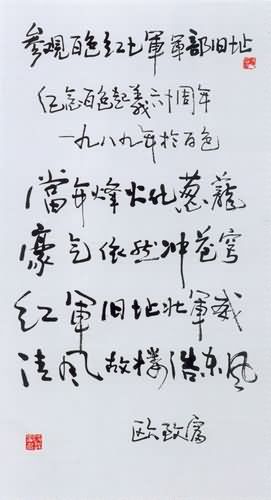 参观百色红七军军部旧址
纪念百色起义六十周年
一九八九年於百色
当年烽火化葱茏
豪气依然冲苍穹
红军旧址壮军威
清风故楼浩东风
欧致富